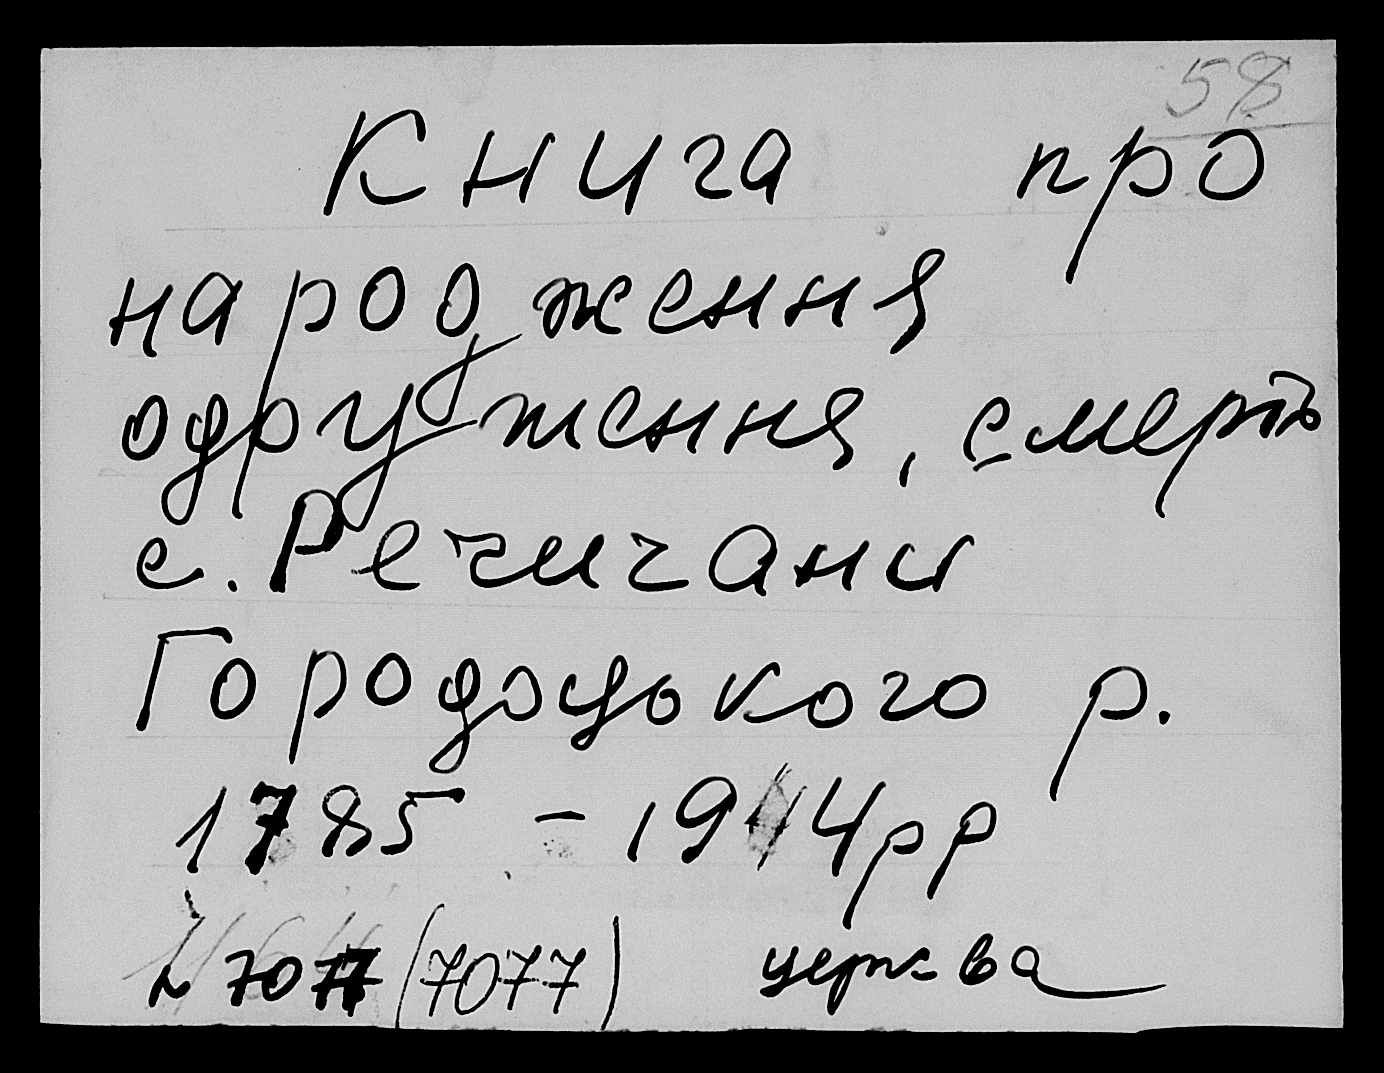 58
Книга про
народження
одруження, смерть
с. Речичани
Городоцького р.
1785 - 1914рр
(7077) церква